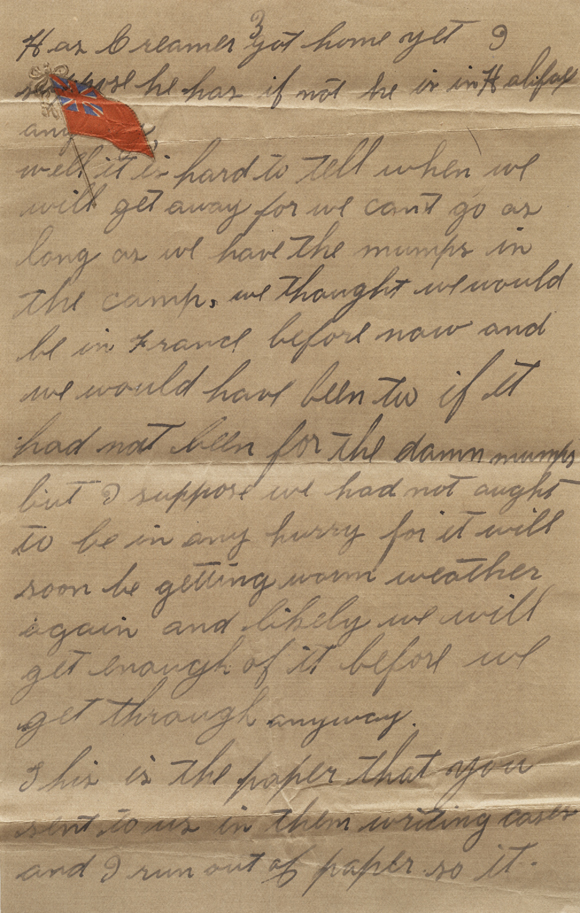 3
Has Creamer got home yet I
suppose he has if not he is in Halifax
any
well it is hard to tell when we
will get away for we cant go as
long as we have the mumps in
the camp, we thought we would
be in France before now and
we would have been to if it
had not been for the damn mumps
but I suppose we had not aught
to be in any hurry for it will
soon be getting warm weather
again and likely we will
get enough of it before we
get through anyway.
This is the paper that you
sent to us in them writing cases
and I run out of paper so it.